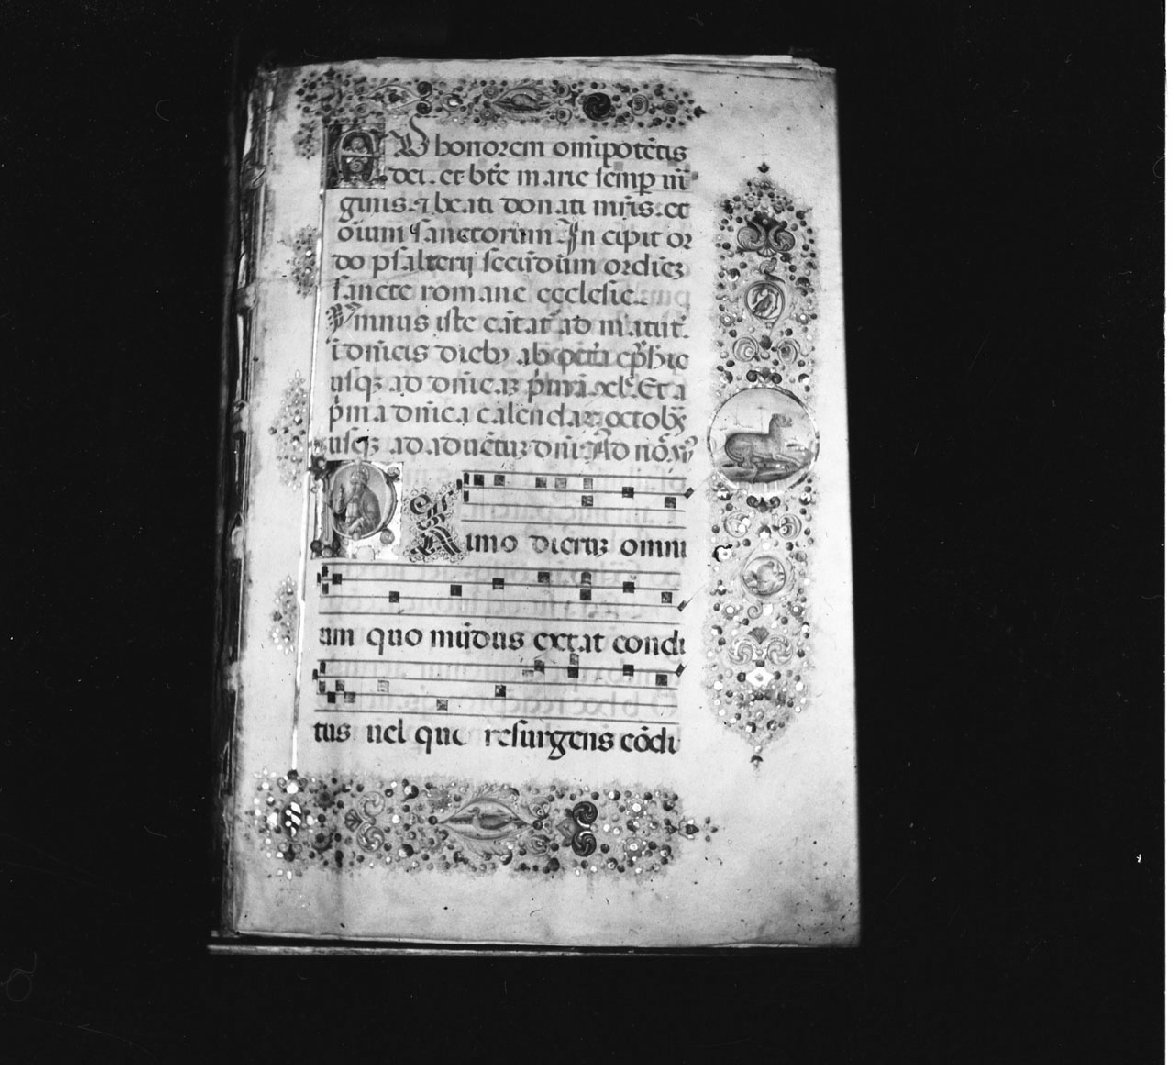 AD honorem om̅ipote̅tis
dei. et bt̅e marie semp̱ ui̅r
ginis. ⁊ beati donati mr̅is. et
oium sanctorum. Incipit or
do psalterij secu̅dum ordine̅
sancte romane ecclesie.
Ymnus iste ca̅tat᷑ ad matut᷑.
i̅ domi̅cis diebꝫ ab octa̅ eph̅ie
usqꝫ ad dm̅cā p̅mā xl᷑. Et a
p̅ma dn̅ica calendaꝝ octobꝝ
usqꝫ ad aduentu̅ dn̅i. Ad no̅
PRimo dierum omni
um quo mu̅dus extat condi
tus uel quo resurgens co̅di